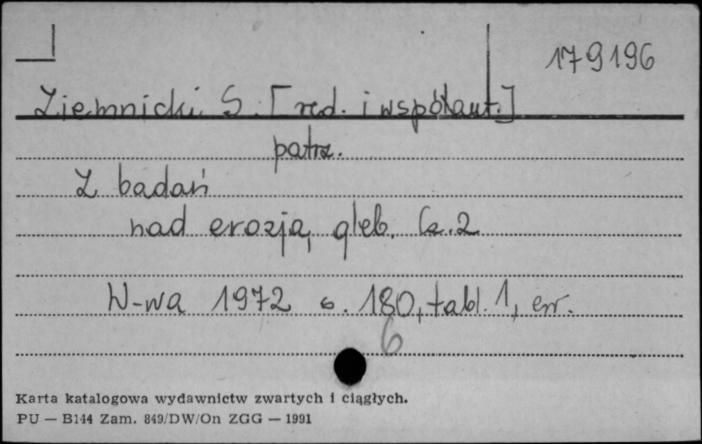 179196
Ziemnicki S. [red. i współaut.]
patrz.
Z badań
nad erozją gleb. Cz. 2
W-wa 1972 s. 180, tabl. 1, err.
6
Karta katalogowa wydawnictw zwartych i ciągłych.
PU — B144 Zam. 849/DW/On ZGG — 1991